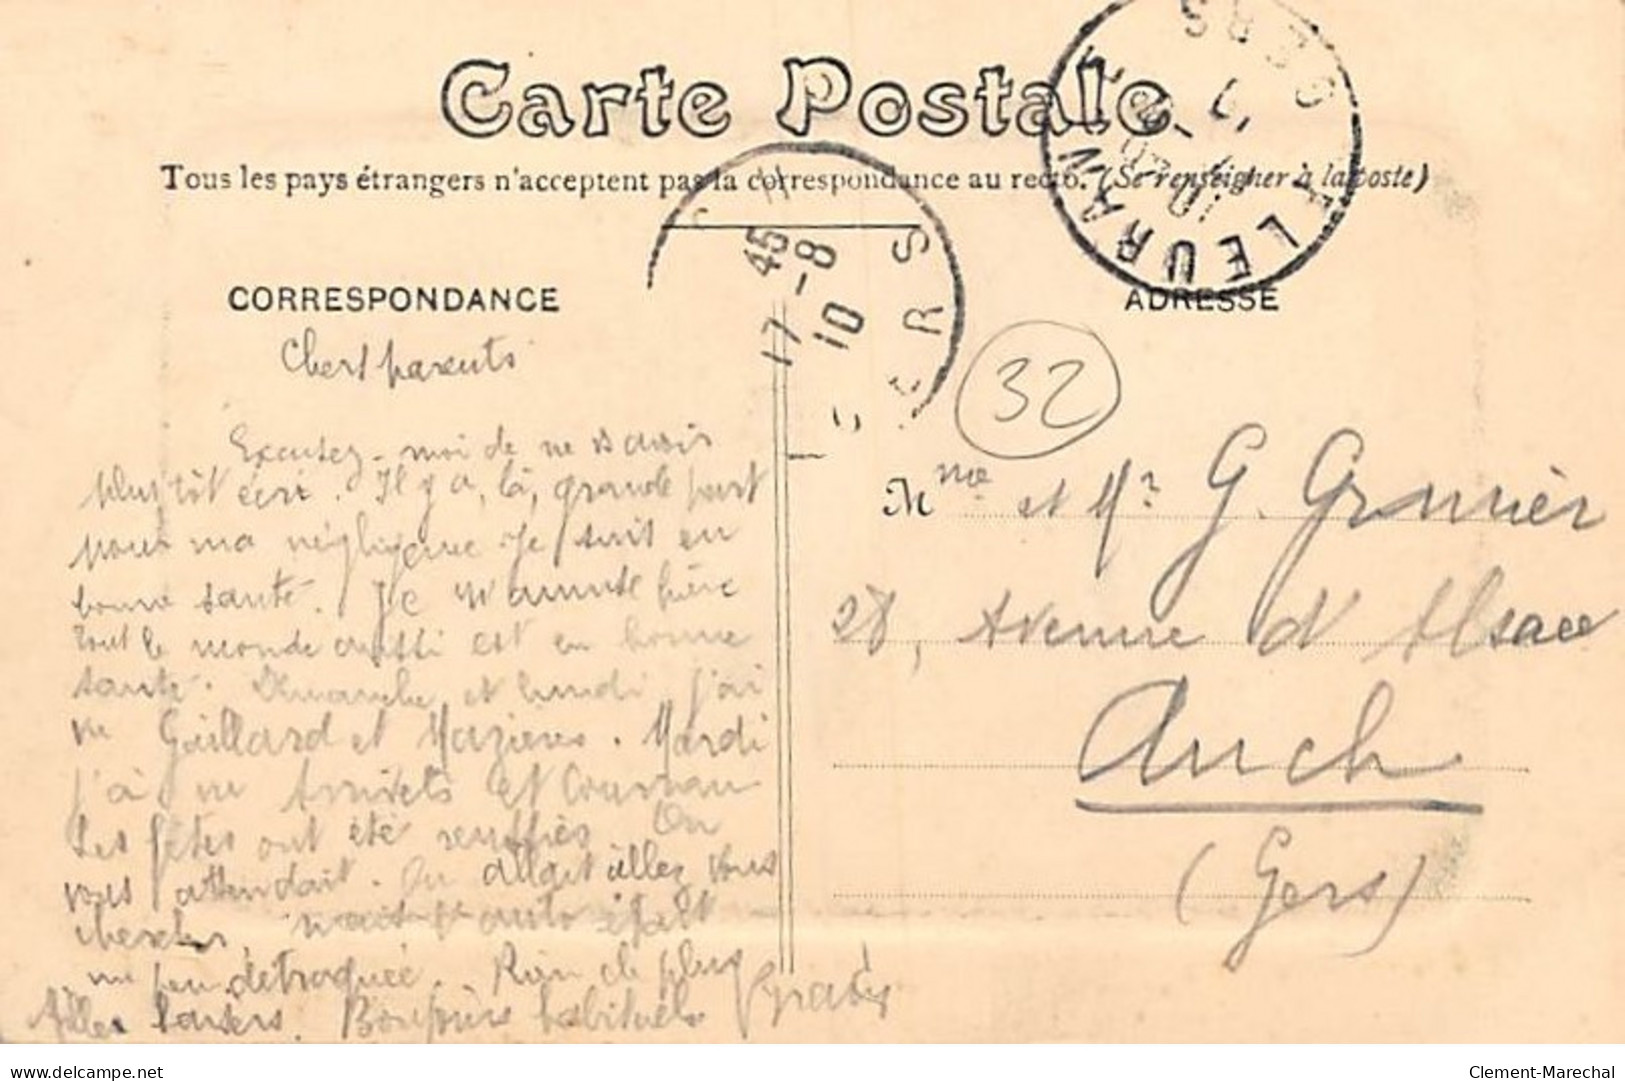 Carte Postale
Tous les pays étrangers n'acceptent pas la correspondance au recto. (Se renseigner à la poste)
FLEURANCE
GERS
17
10
GERS
17 45
-8
10
CORRESPONDANCE
ADRESSE
Chers parents
32
Excusez-moi de ne avoir
plustôt écri. Il y a, là, grande part
pour ma négligence. Je suis en
bonne santé. Je m'amuse
tout le monde aussi est en bonne
santé. Dimanche et lundi j'ai
vu Gaillard et Mazières. Mardi
j'ai vu et Cournau
Les fêtes ont été On
vous attendait. On allait allez vous
chercher, mais auto était
un peu détraquée. Rien de plus
Mme et Mr G. Granier
28, Avenue d'Alsace
Auch
(Gers)
baisers. Bonjours habituels
delcampe.net
Clement-Marechal